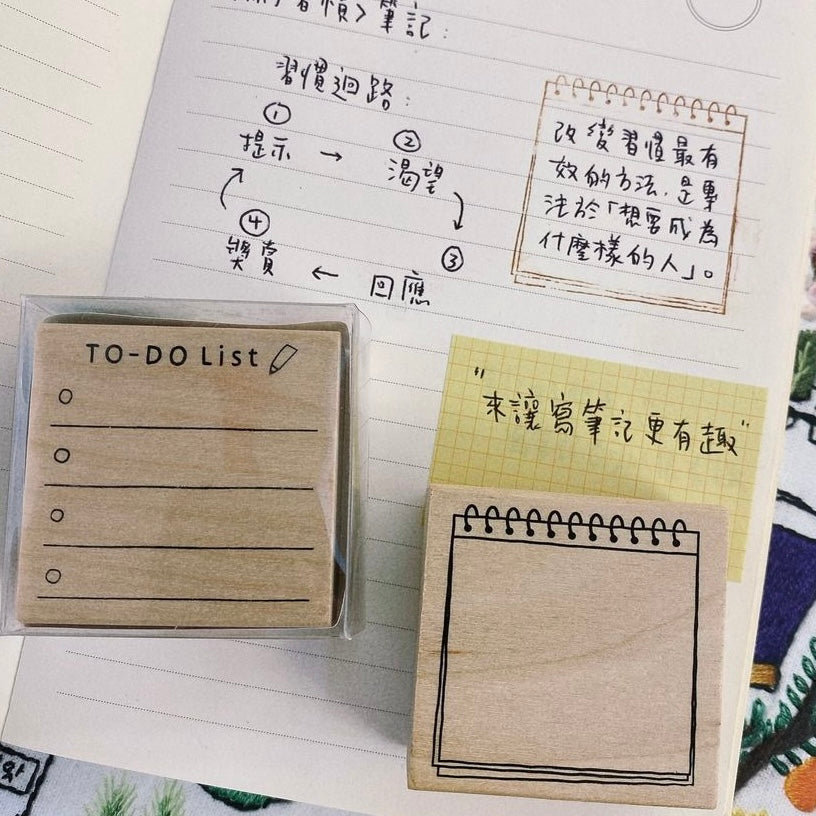 習慣>筆記:
習慣迴路:
①
提示 → ②
渴望
③
回應 ←
④
獎賞
改變習慣最有
效的方法,是專
注於「想要成為
什麼樣的人」。
"來讓寫筆記更有趣"
TO-DO List